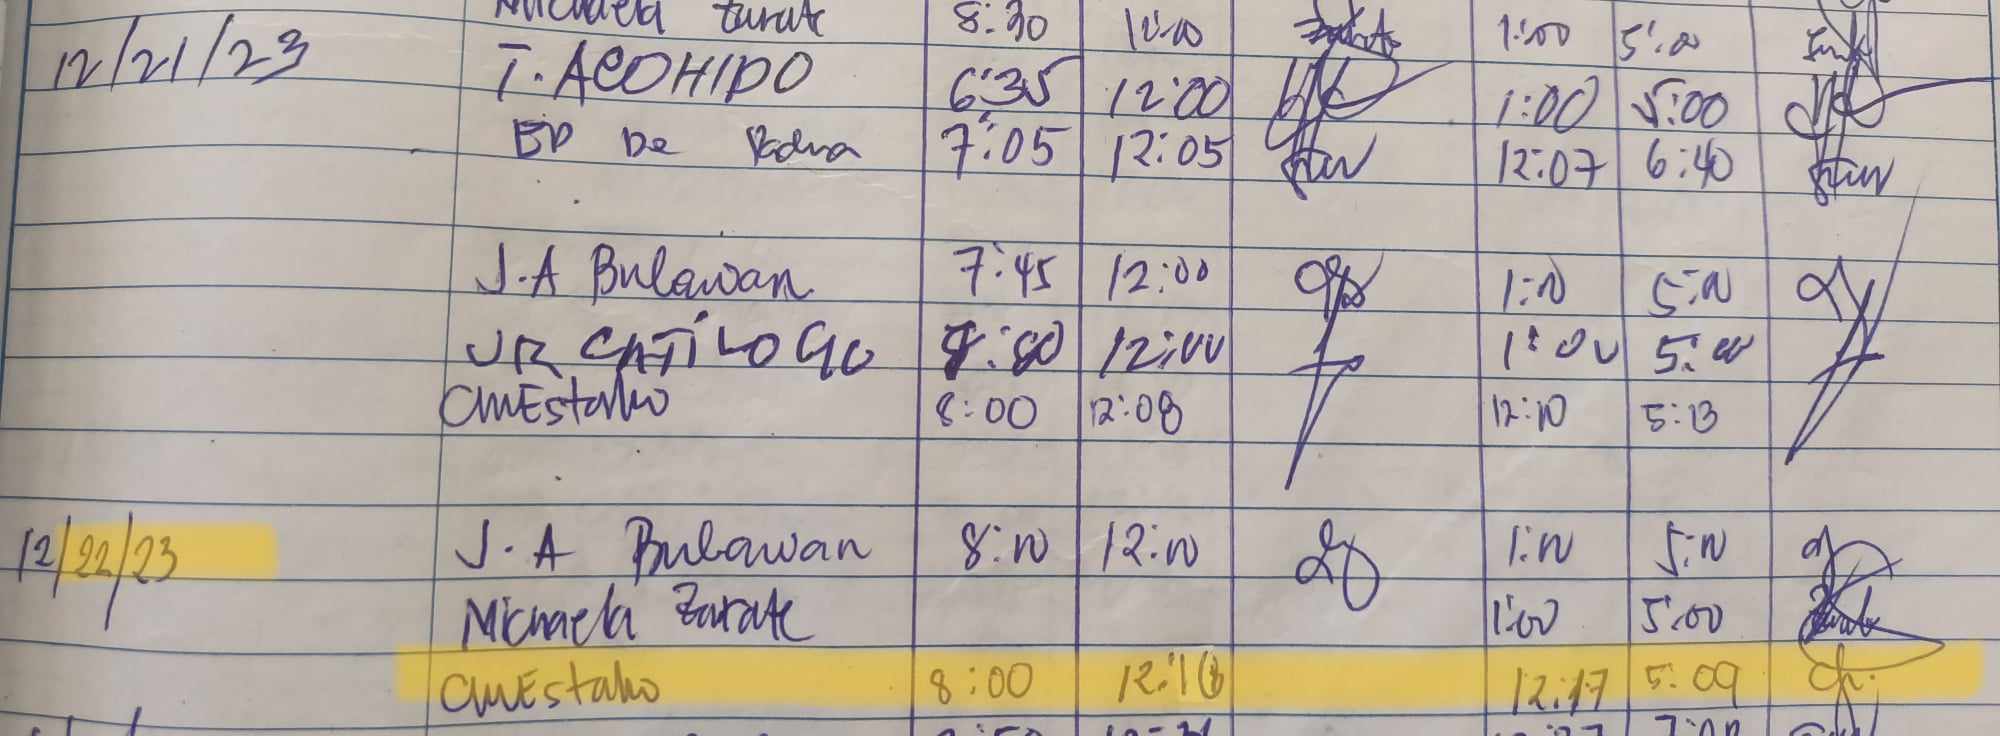 Michaela Zarate 8:30 12:00 1:00 5:00
12/21/23 T. ACOHIDO 6:35 12:00 1:00 5:00
ED De 7:05 12:05 12:07 6:40
J.A Bulawan 7:45 12:00 1:00 5:00
JR CATILOGO 12:00 1:00 5:00
CMEstaño 8:00 12:08 12:10 5:13
12/22/23 J.A Bulawan 8:00 12:00 1:00 5:00
Michaela Zarate 1:00 5:00
CMEstaño 8:00 12:17 5:09